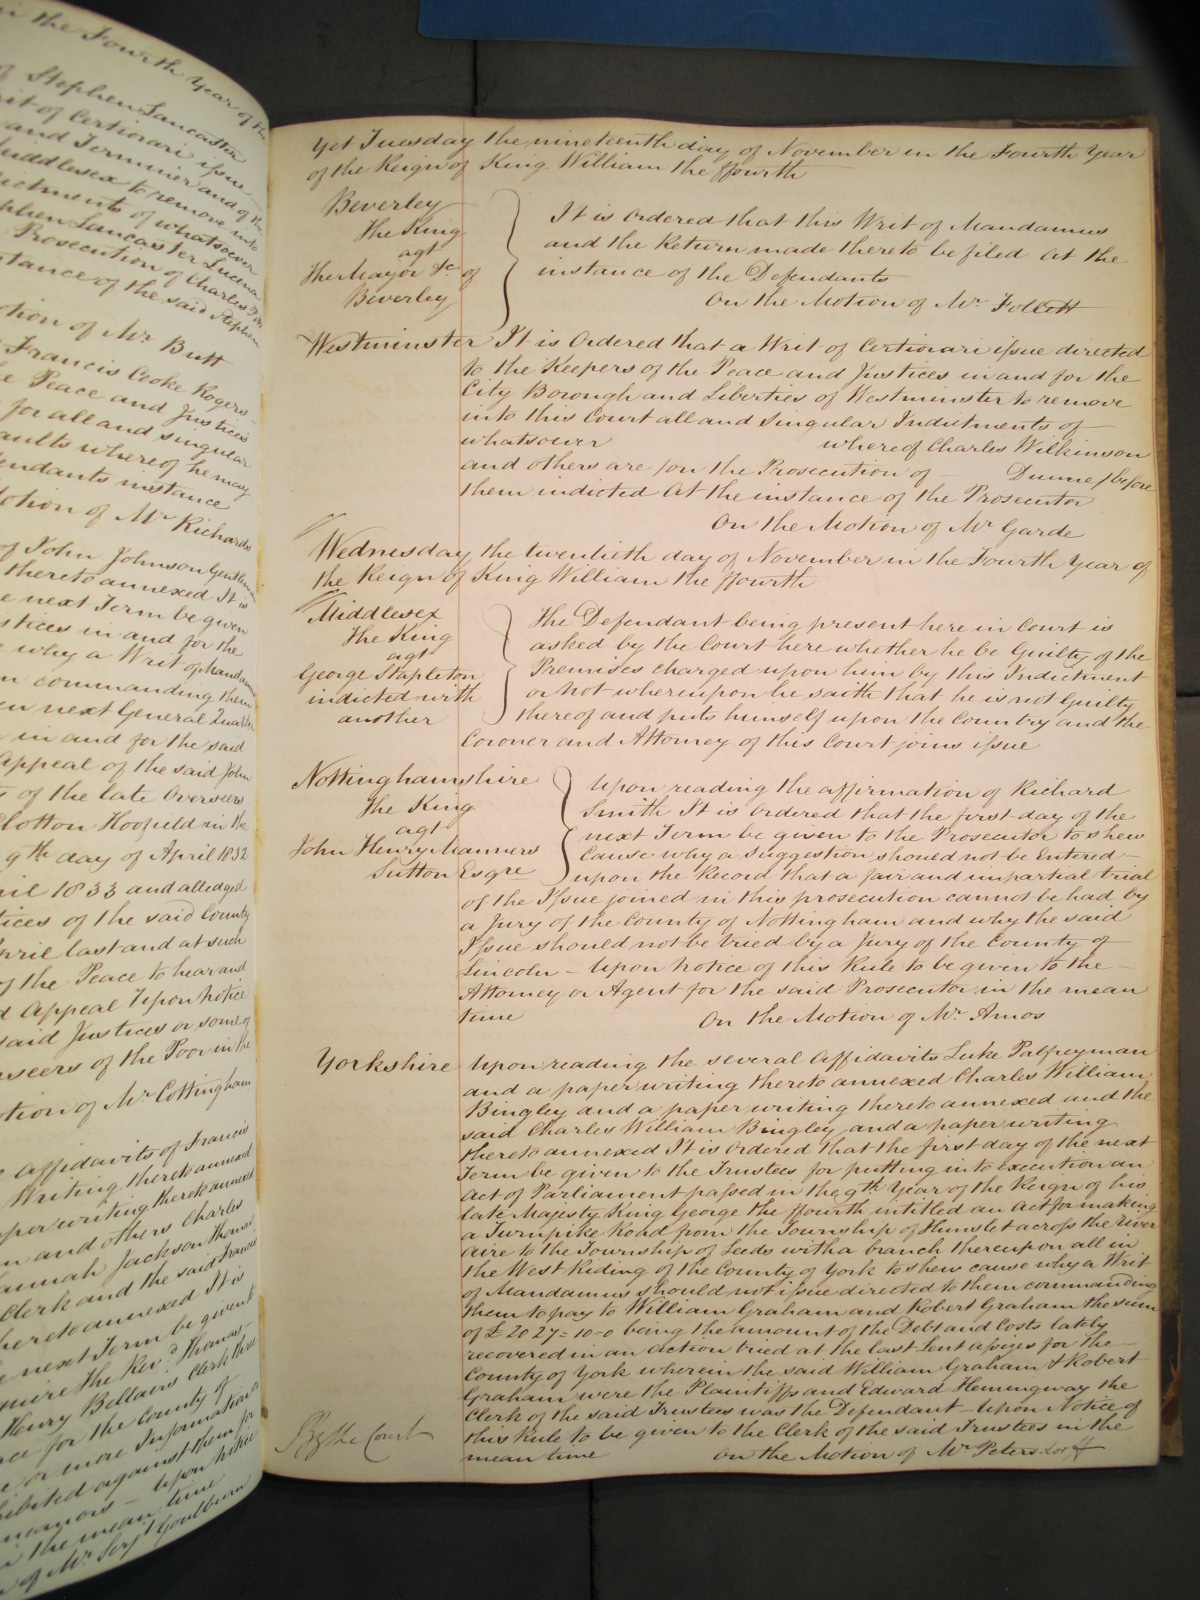 in the Fourth Year of the
of Stephen Lancaster
Writ of Certiorari issue
and Terminer and of the
Middlesex to remove into
Indictments of whatsoever
Stephen Lancaster Lucena
Prosecution of Charles
instance of the said Stephen
Motion of Mr. Butt
Francis Cooke Rogers
the Peace and Justices
for all and singular
assaults whereof he may
defendants instance
Motion of Mr Richards
of John Johnson Gentleman
thereto annexed It is
the next Term be given
Justices in and for the
why a Writ of Mandamus
commanding them
next General Quarter
in and for the said
Appeal of the said John
of the late Overseers
Clotton Hoofield in the
9th day of April 1832
April 1833 and alledged
Justices of the said County
April last and at such
of the Peace to hear and
Appeal Upon notice
said Justices or some of
Overseers of the Poor in the
Motion of Mr Cottingham
affidavits of Francis
Writing thereto annexed
paper writing thereto annexed
and others Charles
Hannah Jackson Thomas
Clerk and the said Francis
thereto annexed It is
next Term be given to
Esquire The Revd. Thomas
Henry Bellairs Clerk three
Peace for the County of
or more Information
exhibited against them for
Upon notice
in the mean time
of Mr. Serjt Goulburn
Yet Tuesday the nineteenth day of November in the Fourth Year
of the Reign of King William the ffourth
Beverley
The King
agt
The Mayor &c of
Beverley
It is Ordered that this Writ of Mandamus
and the Return made thereto be filed At the
instance of the Defendants
On the Motion of Mr. Follett
Westminster It is Ordered that a Writ of Certiorari issue directed
to the Keepers of the Peace and Justices in and for the
City Borough and Liberties of Westminster to remove
into this Court all and Singular Indictments of
whatsoever whereof Charles Wilkinson
and others are (on the Prosecution of Dunnes) before
them indicted At the instance of the Prosecutor
On the Motion of Mr Garde
Wednesday the twentieth day of November in the Fourth Year of
the Reign of King William the ffourth
Middlesex
The King
agt
George Stapleton
indicted with
another
The Defendant being present here in Court is
asked by the Court here whether he be Guilty of the
Premises charged upon him by this Indictment
or Not whereupon he saith that he is not Guilty
thereof and puts himself upon the Country and the
Coroner and Attorney of this Court joins issue
Nottinghamshire
The King
agt
John Henry Manners
Sutton Esqre
Upon reading the affirmation of Richard
Smith It is Ordered that the first day of the
next Term be given to the Prosecutor to shew
Cause why a Suggestion should not be Entered
upon the Record that a fair and impartial trial
of the Issue joined in this prosecution cannot be had by
a Jury of the County of Nottingham and why the said
Issue should not be tried by a Jury of the County of
Lincoln – Upon Notice of this Rule to be given to the
Attorney or Agent for the said Prosecutor in the mean
time On the Motion of Mr. Amos
Yorkshire Upon reading the several Affidavits Luke Palfreyman
and a paper writing thereto annexed Charles William
Bingley and a paper writing thereto annexed and the
said Charles William Bingley and a paper writing
thereto annexed It is Ordered that the first day of the next
Term be given to the Trustees for putting into execution an
Act of Parliament passed in the 9th Year of the Reign of his
late Majesty King George the ffourth intitled an Act for making
a Turnpike Road from the Township of Hunslet across the river
Aire to the Township of Leeds with a branch thereupon all in
the West Riding of the County of York to shew cause why a Writ
of Mandamus should not issue directed to them commanding
them to pay to William Graham and Robert Graham the sum
of £2027=10=0 being the amount of the Debt and Costs lately
recovered in an action tried at the last Lent assizes for the
County of York wherein the said William Graham & Robert
Graham were the Plaintiffs and Edward Hemingway the
Clerk of the said Trustees was the Defendant – Upon Notice of
this Rule to be given to the Clerk of the said Trustees in the
mean time On the Motion of Mr Petersdorff
By the Court